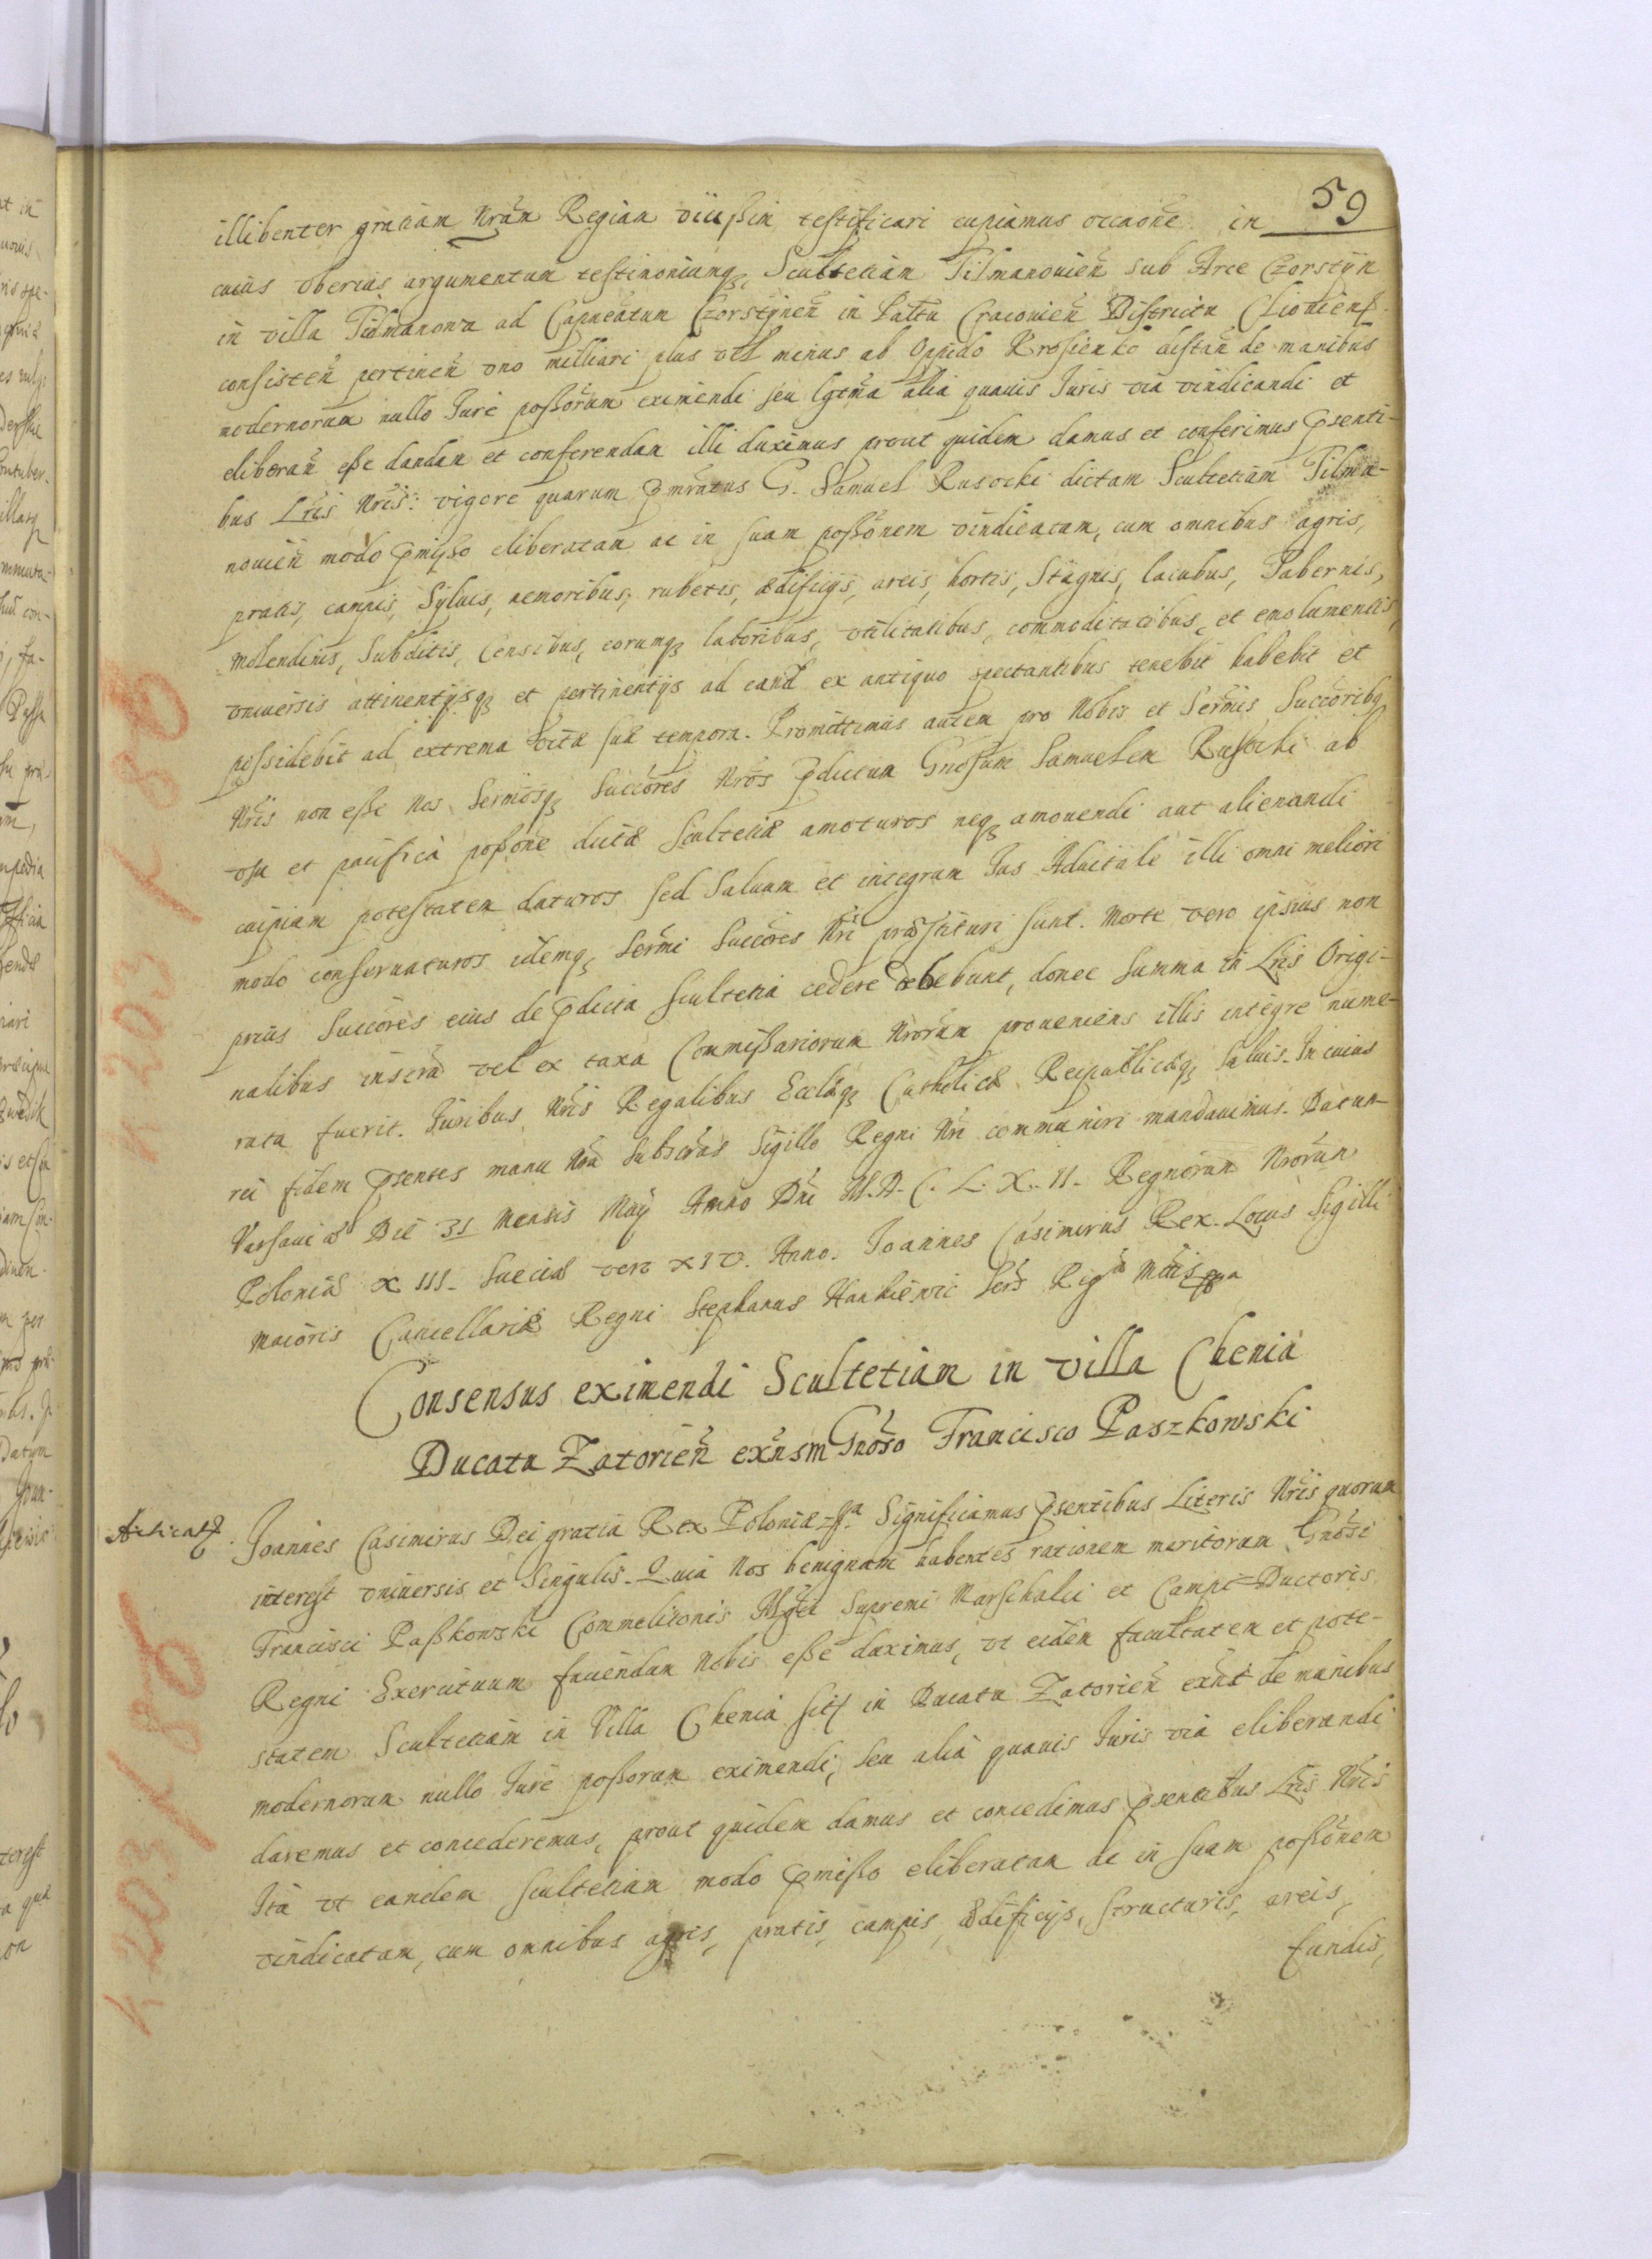 59
illibenter gratiam Nrãm Regiam viciβim testificari cupiamus occaõne in
cuius vberius argumentum testimoniumq; Scultetiam Tilmanouieñ sub Arce Czorstÿn
in villa Tidmanowa ad Capneatum Czorstÿneñ in Lattu Cracouieñ Districtu
consisteñ pertineñ vno milliari plus vel minus ab Oppido Krosienko distañ de manibus
modernorum nullo Jure poβorum eximendi seu lgtma alia quauis Juris via vindicandi et
eliberañ eβe dandam et conferendam illi duximus prout quidem damus et conferimus pñsenti-
bus Lris Nris: vigore quarum pmratus G. Samuel Rusocki dictam Scultetiam Tilma-
nouieñ modo pmiβo eliberatam ac in suam poβonem vindicatam, cum omnibus agris,
pratis, campis, Syluis, nemoribus, rubetis, ædificijs, areis, hortis, Stagnis, lacubus, Tabernis,
Molendinis, Subditis, Censibus, eorumq; laboribus, vtilitatibus, commoditatibus, et emolumentis,
vniuersis attinentijsq; et pertinentijs ad eand ex antiquo spectantibus tenebit habebit et
possidebit ad extrema vitæ suæ tempora. Promittimus autem pro Nobis et Sermis Succoribq
Nris non eβe Nos Sermosq; Succores Nros pdictum Gnosum Samuelem Rusocki ab
vsu et pacifica poβone dictæ Scultetiæ amoturos neq; amouendi aut alienandi
cuipiam potestatem daturos sed Saluum et integrum Jus Aduitale illi omni meliori
modo conseruaturos idemq; Sermi Succores Nri præstituri sunt. Morte vero ipsius non
prius Succores eius de pdicta Scultetia cedere debebunt, donec summa in Lris Origi-
nalibus inserta vel ex taxa Commiβariorum Nrorum proueniens illis integre nume-
rata fuerit. Juribus Nris Regalibus Ecclæq; Catholicæ Reipublicæq; saluis. In cuius
rei fidem pñsentes manu Nra Subscras Sigillo Regni Nri communiri mandauimus. Datum
Varsauiæ Die 31 Mensis Maÿ Anno Dni M.D.C.L.X.II. Regnorum Nrorum
Poloniæ XIII. Sueciæ vero XIV. Anno. Joannes Casimirus Rex. Locus Sigilli
Maioris Cancellariæ Regni Stephanus Hankiewic Ser Rig Mttis
Consensus eximendi Scultetiam in villa Chenia
Ducatu Zatorieñ exñsm Gnoso Francisco Paszkowski
Joannes Casimirus Dei gratia Rex Poloniæ Significamus pñsentibus Literis Nris quorum
interest vniuersis et Singulis. Quia Nos benignam habentes rationem meritorum Gnosi
Francisci Paβkowski Commelitonis Mgci Supremi Marschalci et Campi-Ductoris
Regni Exercituum fauendum Nobis eβe duximus, vt eidem facultatem et pote-
statem Scultetiam in Villa Chenia sit in Ducatu Zatorieñ exñt de manibus
modernorum nullo Jure poβorum eximendi, seu alia quauis Juris via eliberandi
daremus et concederemus, prout quidem damus et concedimus pñsentibus Lris Nris
Ita vt eandem scultetiam modo pmiβo eliberatam ac in suam poβonem
vindicatam, cum omnibus agris, pratis, campis, ædificijs, structuris, areis,
fundis,